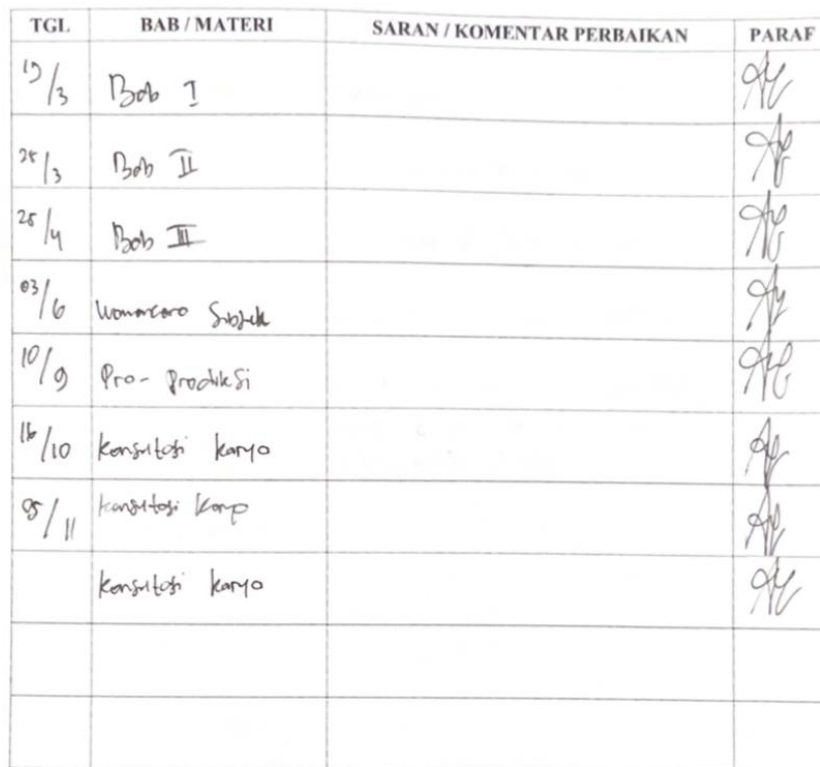 TGL BAB / MATERI SARAN / KOMENTAR PERBAIKAN PARAF
19/3 Bab I
25/3 Bab II
25/4 Bab III
03/6 Wawancara Subjek
10/9 Pra-Produksi
16/10 konsultasi karya
05/11 konsultasi karya
konsultasi karya